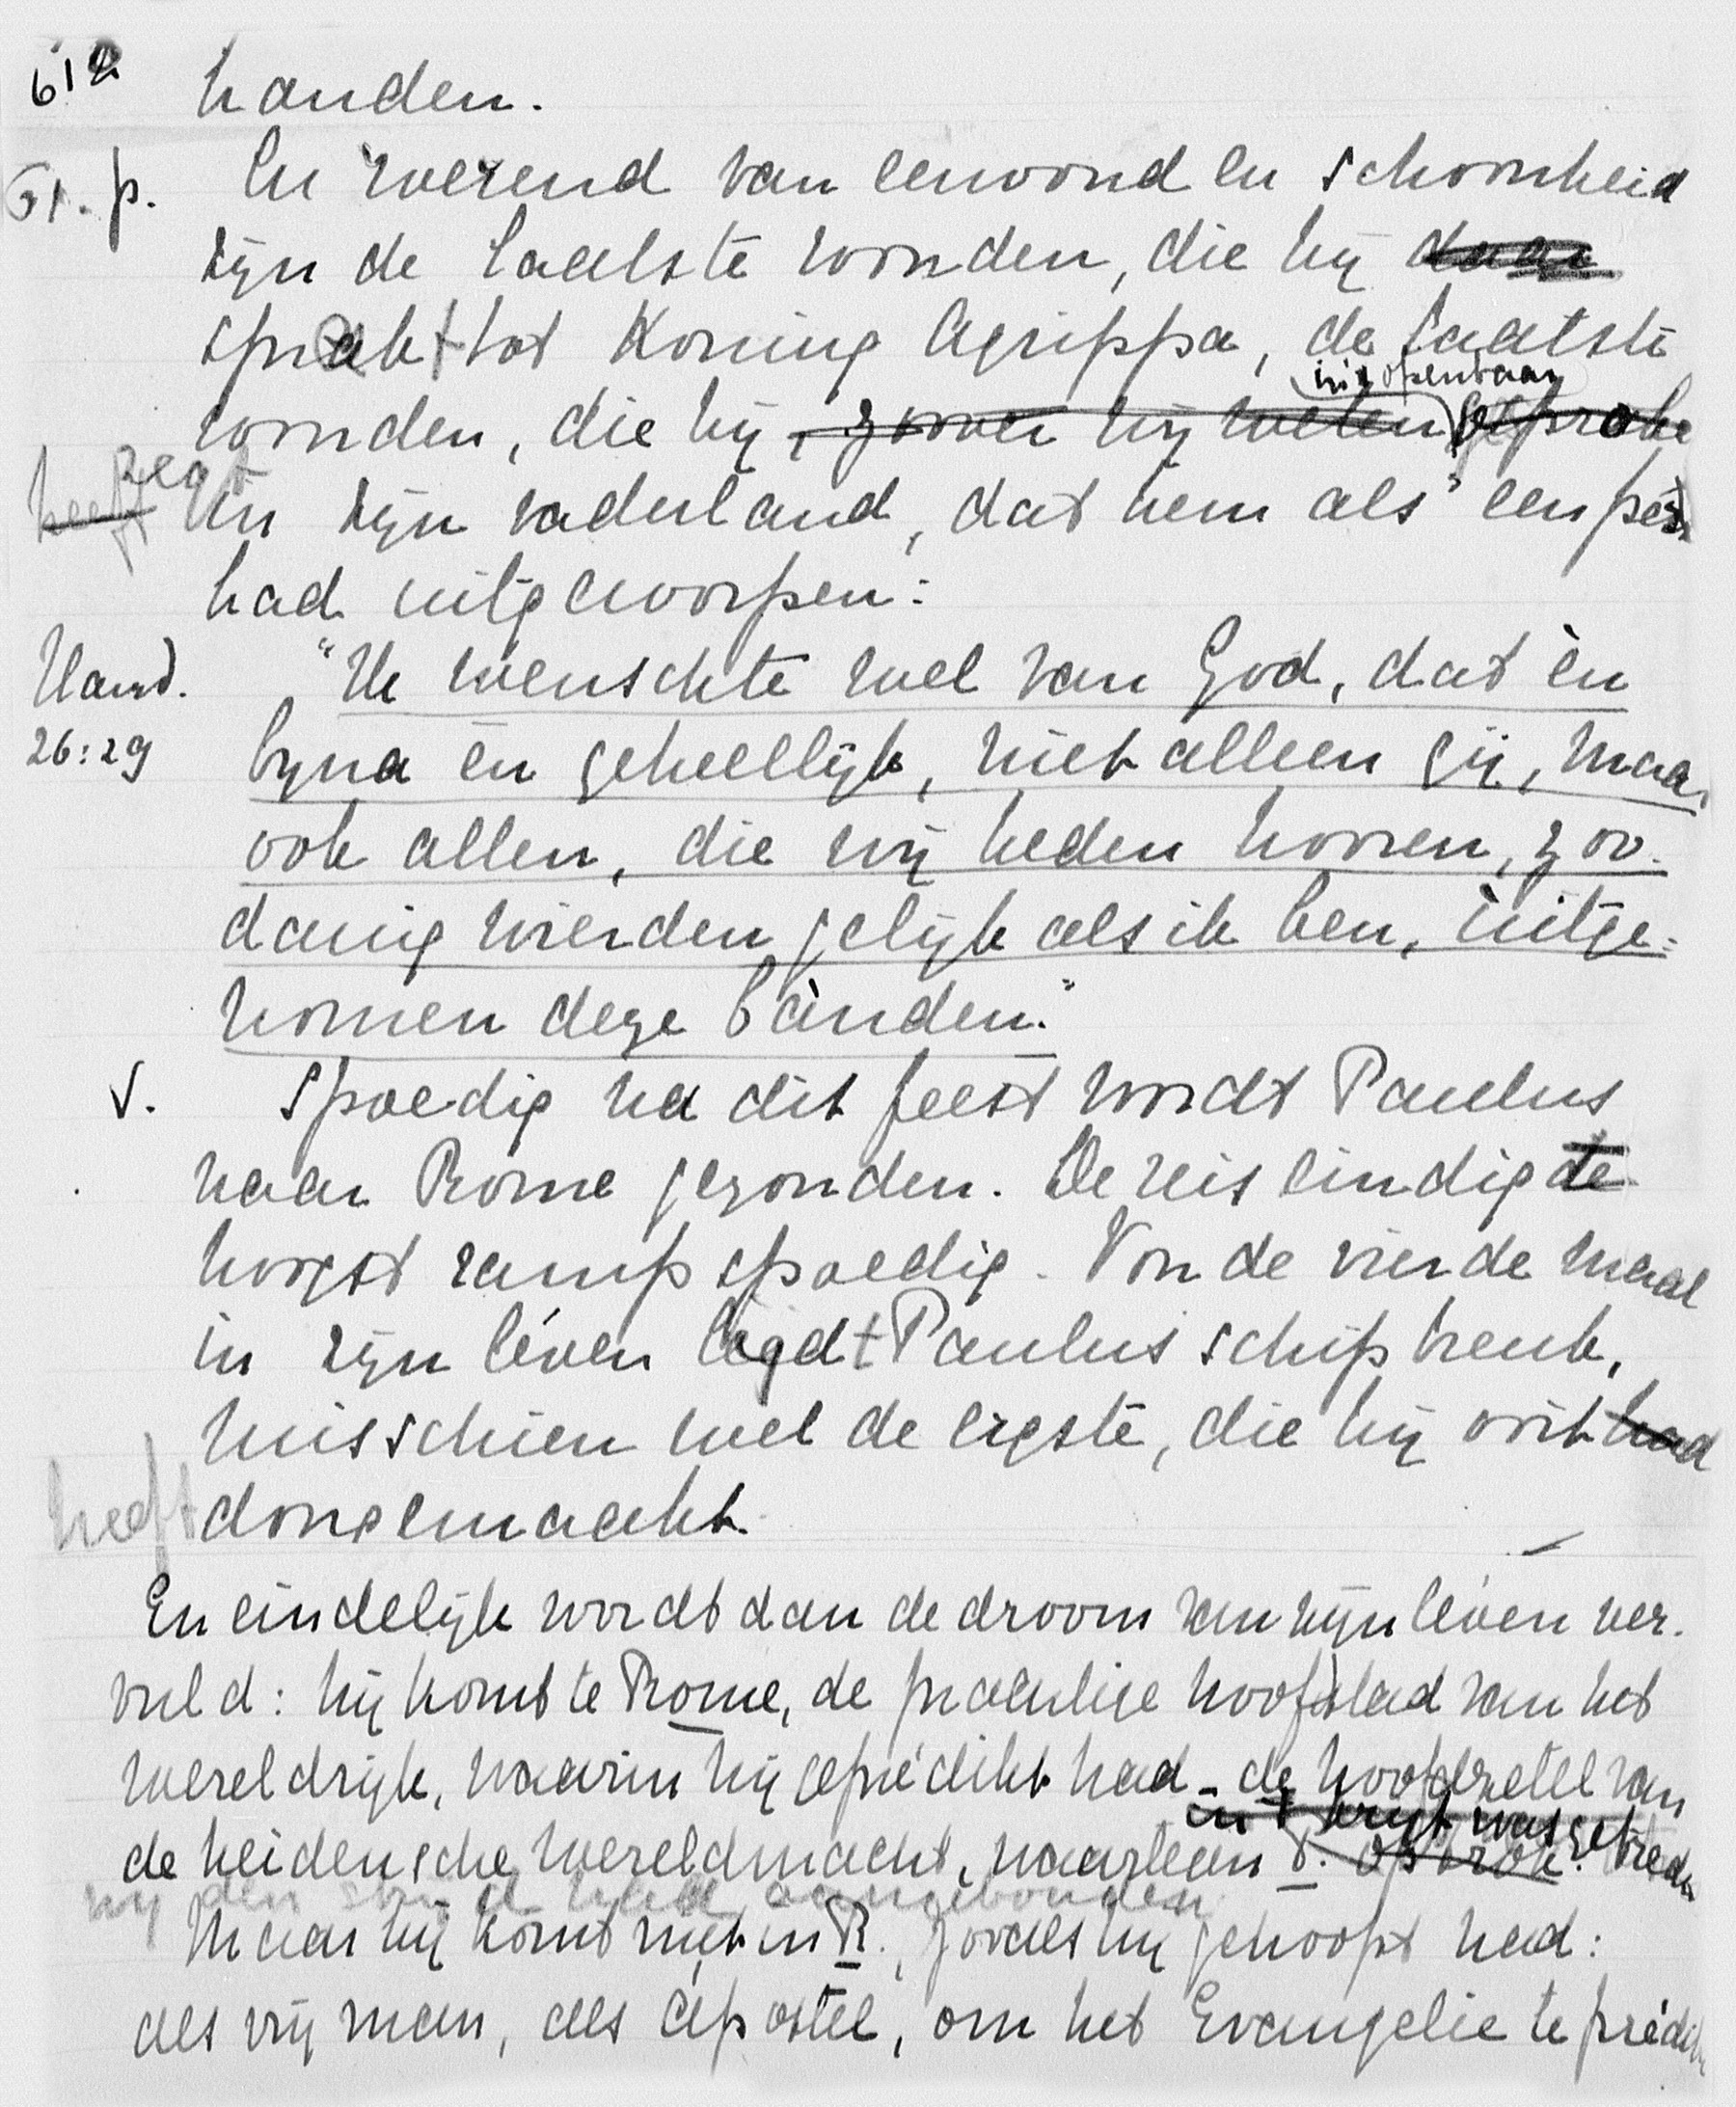 612 handen.
61. p. En roerend van eenvoud en schoonheid
zijn de laatste woorden, die hij daar
spreekt tot Koning Agrippa, de laatste
in 't openbaar
woorden, die hij, zoover wij weten, gesproken
heeft zegt
in zijn vaderland, dat hem als een pest
had uitgeworpen:
Hand. "Ik wenschte wel van God, dat èn
26:29 bijna èn geheellijk, niet alleen gij, maar
ook allen, die mij heden hooren, zoo-
danig wierden gelijk als ik ben, uitge-
nomen deze banden."
V. Spoedig na dit feest wordt Paulus
naar Rome gezonden. De reis eindigde
hoogst rampspoedig. Voor de vierde maal
in zijn leven lijdt Paulus schipbreuk,
misschien wel de ergste, die hij ooit had
heeft doorgemaakt.
En eindelijk wordt dan de droom van zijn leven ver-
vuld: hij komt te Rome, de prachtige hoofdstad van het
wereldrijk, waarin hij gepredikt had - de hoofdzetel van
in 't krijt was getreden
de heidensche wereldmacht, waartegen P. optrok.
hij den strijd had aangebonden
Maar hij komt niet in R., zooals hij gehoopt had:
als vrij man, als apostel, om het Evangelie te prediken